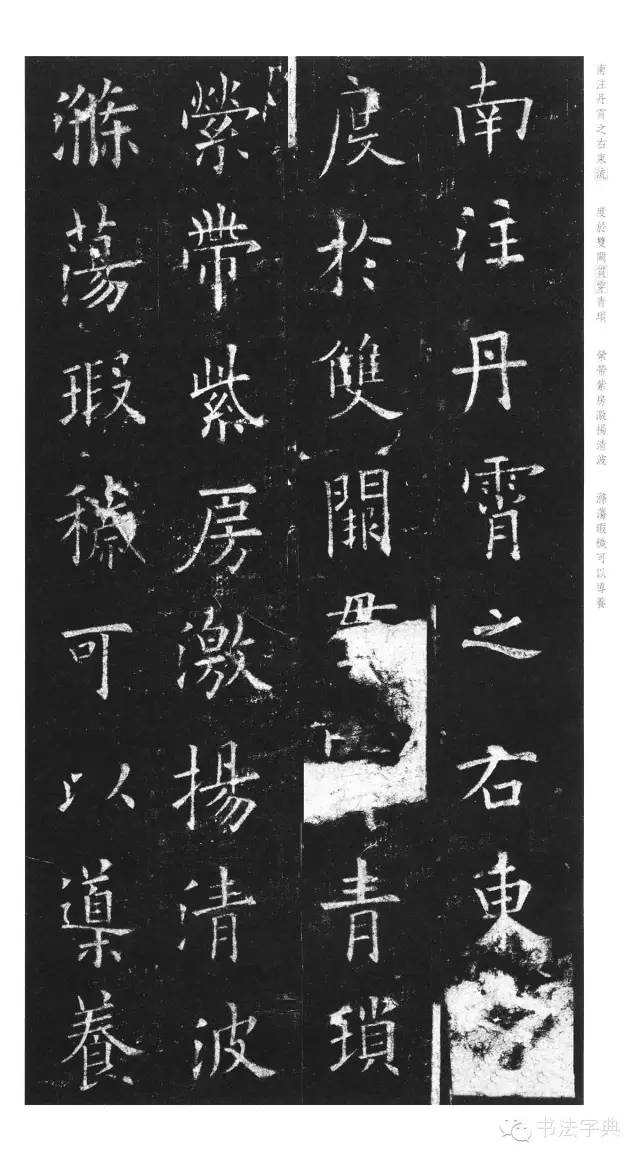 南注丹霄之右東流 度於雙闕貫穿青瑣 縈帶紫房激揚清波 滌蕩瑕穢可以導養
南注丹霄之右東
度於雙闕青瑣
縈帶紫房激揚清波
滌蕩瑕穢可以導養
书法字典